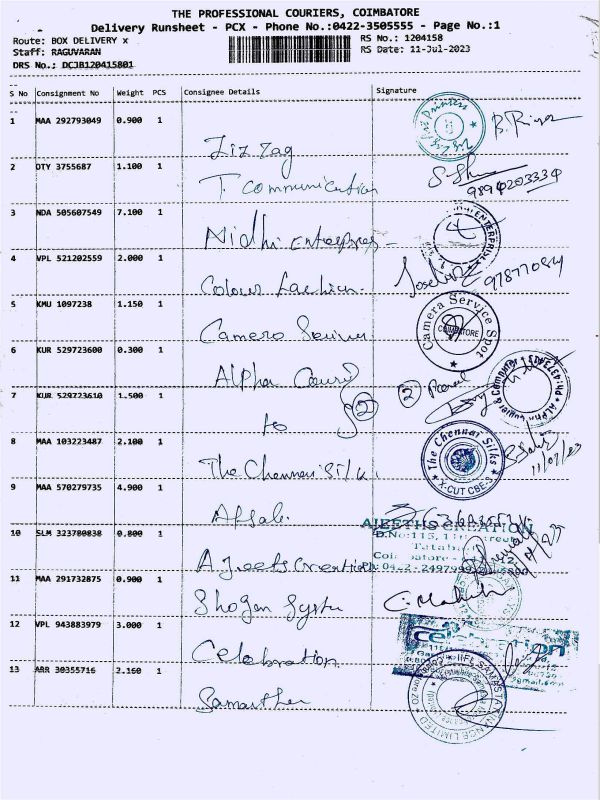 THE PROFESSIONAL COURIERS, COIMBATORE
Delivery Runsheet - PCX - Phone No.:0422-3505555 - Page No.:1
Route: BOX DELIVERY x RS No.: 1204158
Staff: RAGUVARAN RS Date: 11-Jul-2023
DRS No.: DCJB120415801
S No Consignment No Weight PCS Consignee Details Signature
1 MAA 292793049 0.900 1
Ziz Zag
2 DTY 3755687 1.100 1
T. Communication 9894203334
3 NDA 505607549 7.100 1
Nidhi Enterprises
4 VPL 521202559 2.000 1
Colour Fashion
5 KMU 1097238 1.150 1
Camera Service Camera Service Spot COIMBATORE
6 KUR 529723600 0.300 1
Alpha
7 KUR 529723610 1.500 1
to 2 2
8 MAA 103223487 2.100 1
The Chennai Silk The Chennai Silks X-CUT CBE-3
9 MAA 570279735 4.900 1
Afsal
10 SLM 323780838 0.800 1 AJEETHS CREATION
Ajeets Creation
11 MAA 291732875 0.900 1
Shogun System
12 VPL 943883979 3.000 1
Celebration Celebration
13 ARR 30355716 2.160 1
Samantha IIFL SAMASTA FINANCE LIMITED